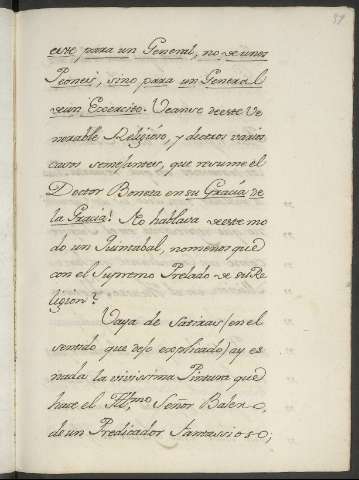 57
cese para un General, no de unos
Peones, sino para un General
de un Exercito. Veanse de este Ve
nerable Religioso, y de otros varios
casos semejantes, que resume el
Doctor Boneta en su Gracia de
la Gracia! No hablava de este mo
do un Juntabal, no menos que
con el Supremo Prelado de su Re
ligion?
Vaya de Satiras (en el
sentido que dejo explicado) ay es
nada la vivissima Pintura que
hace el Ill.mo Señor Balero,
de un Predicador fantassioso;